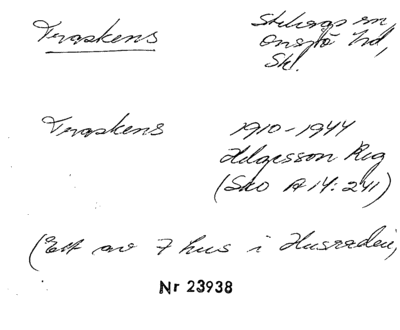 Fraskens
Stehags sn,
Onsjö hd,
Sk.
Fraskens
1910-1944
Helgesson Reg
(SKO A 14: 241)
(Ett av 7 hus i Husraden,
Nr 23938